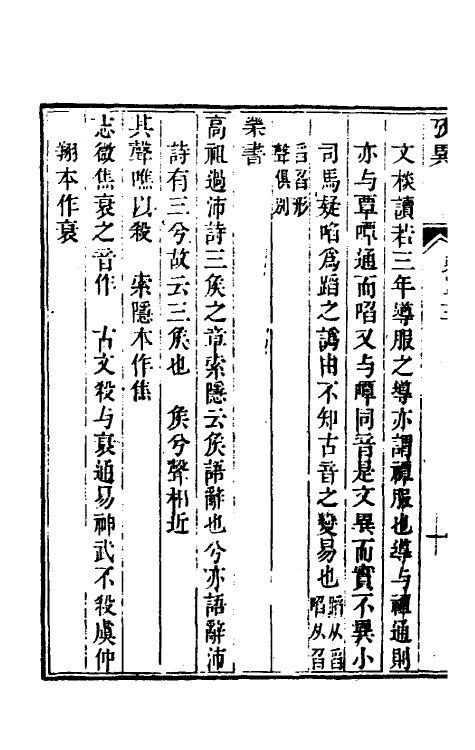 攷異
文棪讀若三年導服之導亦謂禫服也導与禫通則
亦与覃嘾通而啗又与嘾同音是文異而實不異小
司馬疑啗爲蹈之譌由不知古音之變易也蹈从舀
啗从臽
舀臽形
聲俱別
樂書
高祖過沛詩三矦之章索隱云矦語辭也兮亦語辭沛
詩有三兮故云三矦也　矦兮聲相近
其聲噍以殺　索隱本作焦
志微焦衰之音作　古文殺与衰通易神武不殺虞仲
翔本作衰